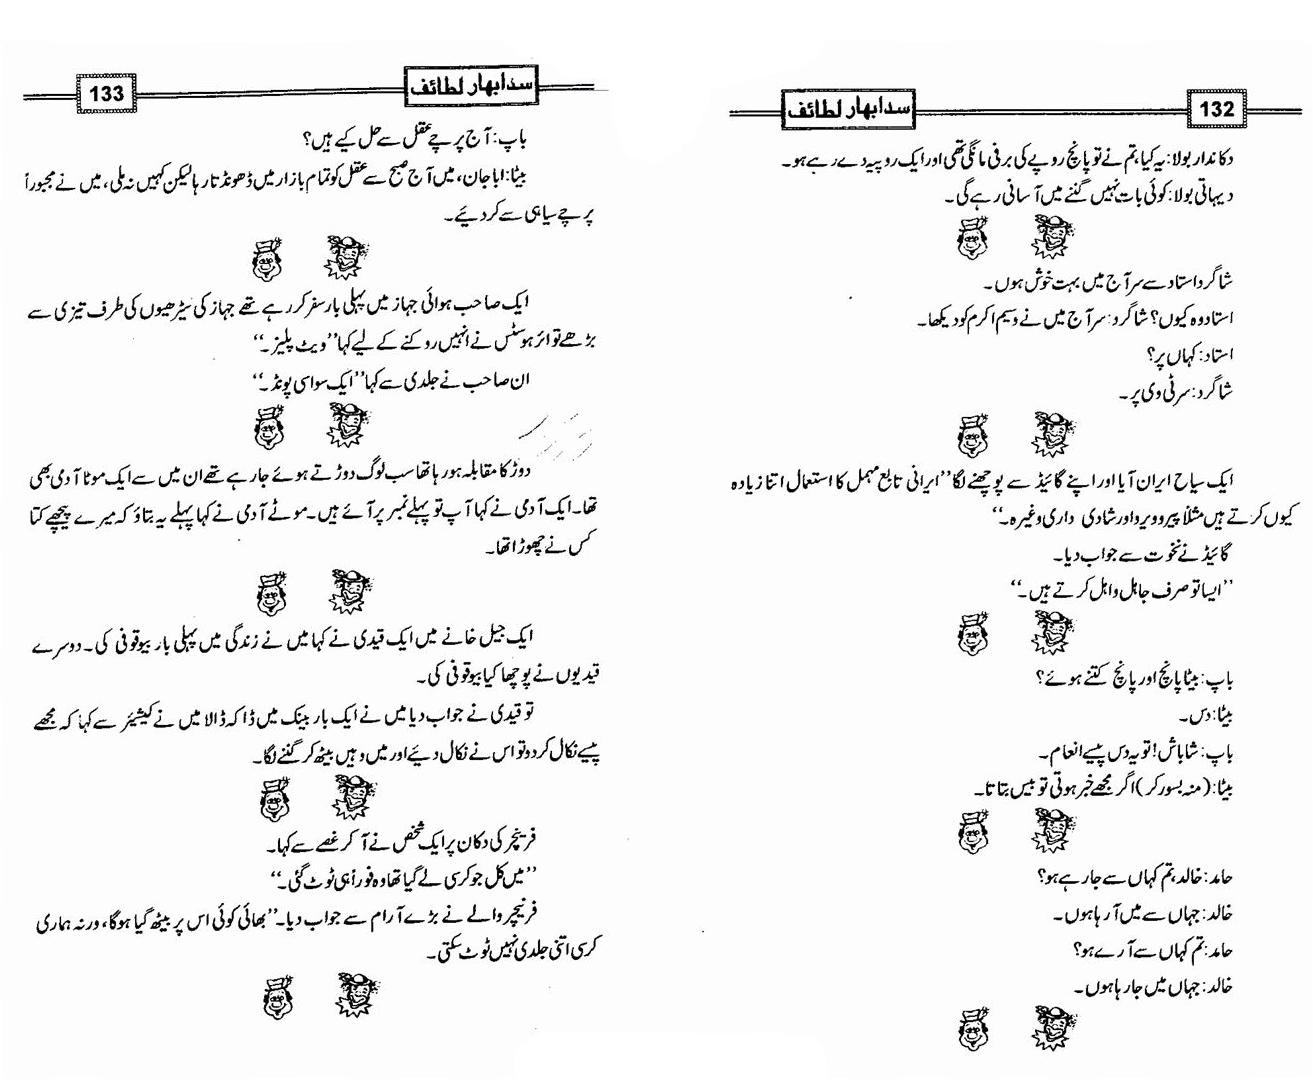 132
سدابهار لطائف
دکاندار بولا: یہ کیا، تم نے تو پانچ روپے کی برفی مانگی تھی اور ایک روپیہ دے رہے ہو۔
دیہاتی بولا: کوئی بات نہیں گننے میں آسانی رہے گی۔
شاگرد استاد سے سر آج میں بہت خوش ہوں۔
استاد وہ کیوں؟ شاگرد: سر آج میں نے وسیم اکرم کو دیکھا۔
استاد: کہاں پر؟
شاگرد: سر ٹی وی پر۔
ایک سیاح ایران آیا اور اپنے گائیڈ سے پوچھنے لگا ”ایرانی تابع مہمل کا استعمال اتنا زیادہ
کیوں کرتے ہیں مثلاً پیرو ویرو اور شادی داری وغیرہ۔“
گائیڈ نے نخوت سے جواب دیا۔
”ایسا تو صرف جاہل واہل کرتے ہیں۔“
باپ: بیٹا پانچ اور پانچ کتنے ہوئے؟
بیٹا: دس۔
باپ: شاباش! تو یہ دس پیسے انعام۔
بیٹا: (منہ بسور کر) اگر مجھے خبر ہوتی تو بیس بتاتا۔
حامد: خالد، تم کہاں سے جا رہے ہو؟
خالد: جہاں سے میں آ رہا ہوں۔
حامد: تم کہاں سے آرے ہو؟
خالد: جہاں میں جا رہا ہوں۔
سدابهار لطائف
133
باپ: آج پرچے عقل سے حل کیے ہیں؟
بیٹا: ابا جان، میں آج صبح سے عقل کو تمام بازار میں ڈھونڈتا رہا لیکن کہیں نہ ملی، میں نے مجبوراً
پرچے سیاہی سے کر دئیے۔
ایک صاحب ہوائی جہاز میں پہلی بار سفر کر رہے تھے جہاز کی سیڑھیوں کی طرف تیزی سے
بڑھے تو ائر ہوسٹس نے انہیں روکنے کے لیے کہا ”ویٹ پلیز۔“
ان صاحب نے جلدی سے کہا ”ایک سو اسی پونڈ۔“
دوڑ کا مقابلہ ہو رہا تھا سب لوگ دوڑتے ہوئے جا رہے تھے ان میں سے ایک موٹا آدمی بھی
تھا۔ ایک آدمی نے کہا آپ تو پہلے نمبر پر آئے ہیں۔ موٹے آدمی نے کہا پہلے یہ بتاؤ کہ میرے پیچھے کتا
کس نے چھوڑا تھا۔
ایک جیل خانے میں ایک قیدی نے کہا میں نے زندگی میں پہلی بار بیوقوفی کی۔ دوسرے
قیدیوں نے پوچھا کیا بیوقوفی کی۔
تو قیدی نے جواب دیا میں نے ایک بار بینک میں ڈاکہ ڈالا میں نے کیشیئر سے کہا کہ مجھے
پیسے نکال کر دو تو اس نے نکال دیئے اور میں وہیں بیٹھ کر گننے لگا۔
فرینچر کی دکان پر ایک شخص نے آ کر غصے سے کہا۔
”میں کل جو کرسی لے گیا تھا وہ فوراً ہی ٹوٹ گئی۔“
فرنیچر والے نے بڑے آرام سے جواب دیا۔ ”بھائی کوئی اس پر بیٹھ گیا ہوگا، ورنہ ہماری
کرسی اتنی جلدی نہیں ٹوٹ سکتی۔